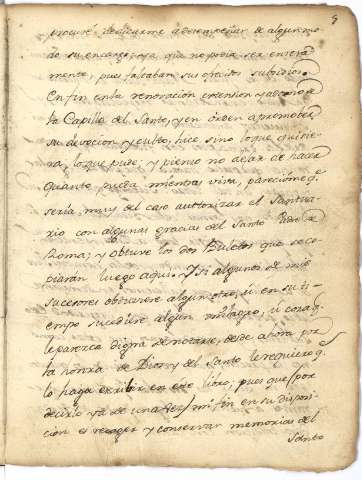 9
procuré dedicarme a desempeñar de algun mo
do su encargo, ya que no podia ser entera
mente, pues faltaban sus ofrecidos subsidios.
En fin en la renovacion extension y adorno de
la Capilla del Santo, y en orden a promover
su devocion y culto, hice sino lo que quisie
ra, lo que pude; y pienso no dexar de hacer
quanto pueda mientras viva, pareciome q.e
seria muy del caso autorizar el Santua
rio con algunas gracias del Santo Padre de
Roma; y obtuve los dos Buletos que se co
piarán luego aqui. Y si alguno de mis
sucesores obtuviere algun otro, ú en su ti
empo sucediere algun milagro, ú cosa q.
le parezca digna de notarse, desde ahora por
la honra de Dios y del Santo le requiero q.
lo haga escribir en este libro; pues que (por
decirlo ya de una vez) mi fin en su disposi
cion es recoger y conservar memorias del
Santo